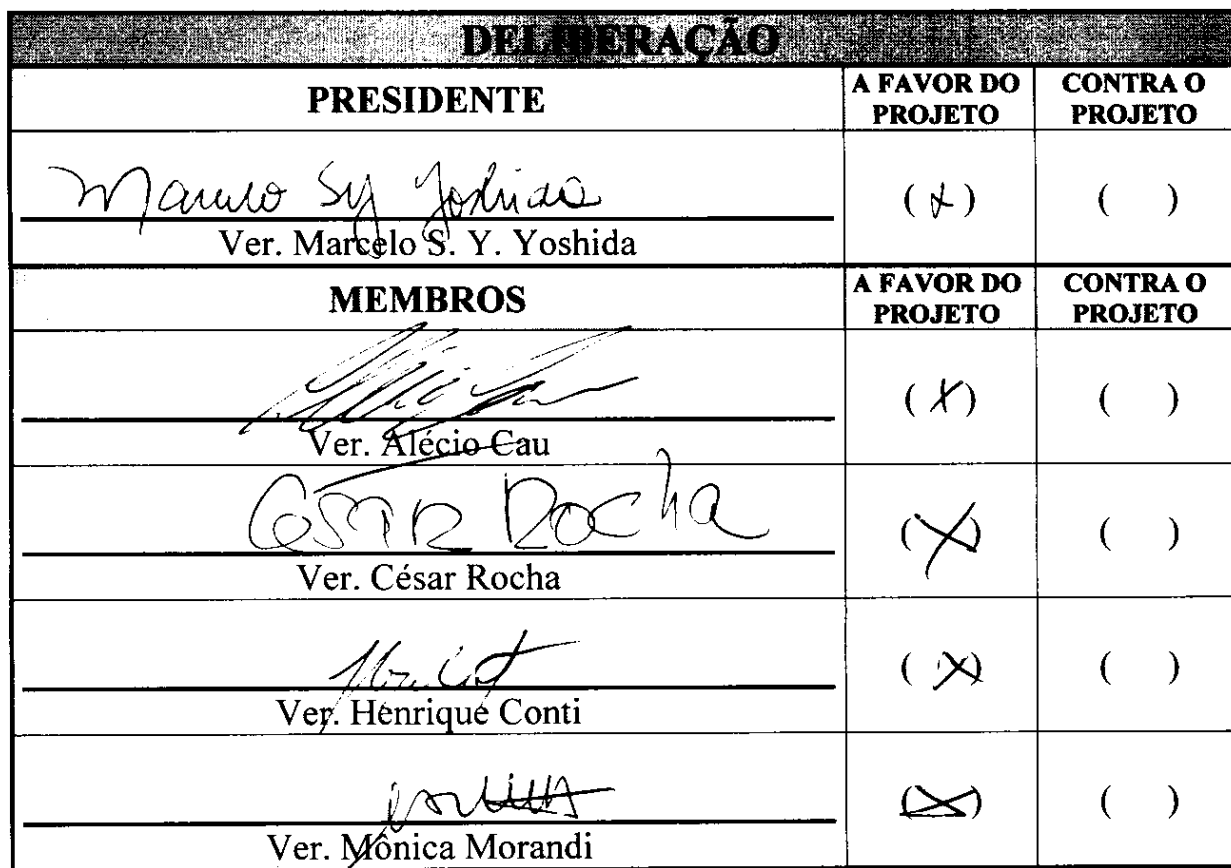 DELIBERAÇÃO
PRESIDENTE
A FAVOR DO PROJETO
CONTRA O PROJETO
Marcelo Sy Yoshida
(x)
( )
Ver. Marcelo S. Y. Yoshida
MEMBROS
A FAVOR DO PROJETO
CONTRA O PROJETO
(X)
( )
Ver. Alécio Cau
CESAR ROCha
(X)
( )
Ver. César Rocha
(X)
( )
Ver. Henrique Conti
(X)
( )
Ver. Mônica Morandi